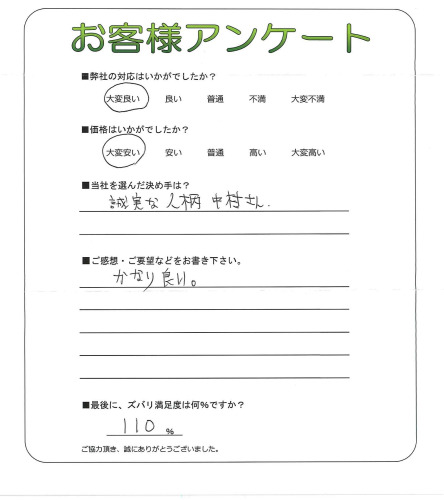 お客様アンケート
■弊社の対応はいかがでしたか？
大変良い 良い 普通 不満 大変不満
■価格はいかがでしたか？
大変安い 安い 普通 高い 大変高い
■当社を選んだ決め手は？
誠実な人柄 中村さん.
■ご感想・ご要望などをお書き下さい。
かなり良い。
■最後に、ズバリ満足度は何%ですか？
110 %
ご協力頂き、誠にありがとうございました。